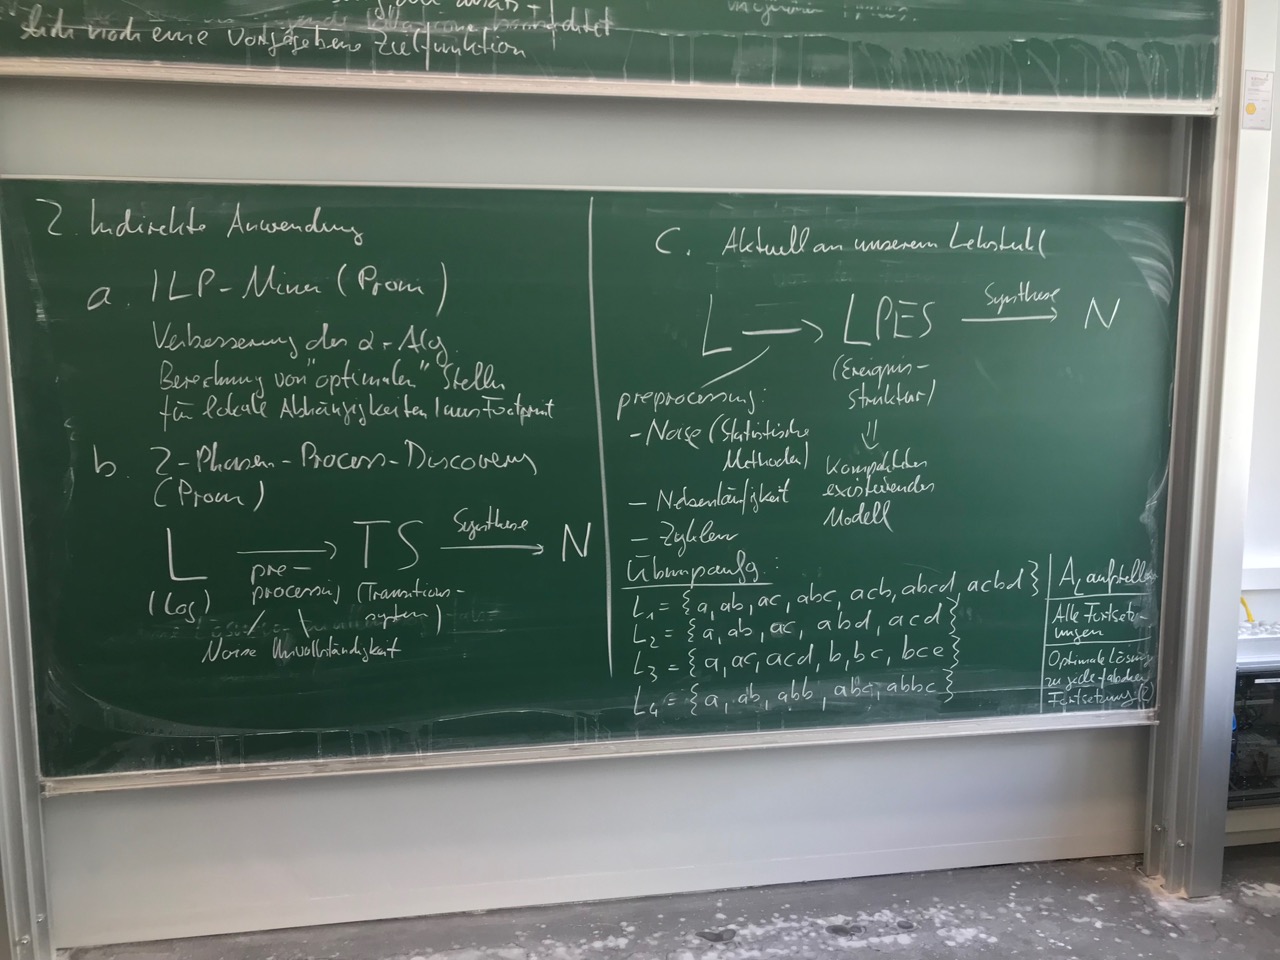 lich noch eine vorgegebene Zielfunktion
2. Indirekte Anwendung
a. ILP-Miner (Prom)
Verbesserung des α-Alg.
Berechnung von "optimalen" Stellen
für lokale Abhängigkeiten / aus Footprint
b. 2-Phasen-Process-Discovery
(Prom)
L → TS Synthese → N
(Log) pre-processing (Transitions-system)
Noise Unvollständigkeit
C. Aktuell an unserem Lehrstuhl
L → LPES Synthese → N
(Ereignis-
struktur)
⇓
Kompaktes
existierendes
Modell
preprocessing:
- Noise (Statistische
Methoden)
- Nebenläufigkeit
- Zyklen
Übungsaufg.:
L₁ = {a, ab, ac, abc, acb, abcd, acbd}
L₂ = {a, ab, ac, abd, acd}
L₃ = {a, ac, acd, b, bc, bce}
L₄ = {a, ab, abb, abc, abbc}
A_L aufstellen
Alle Fortset-
zungen
Optimale Lösung
zu jede falschen
Fortsetzung